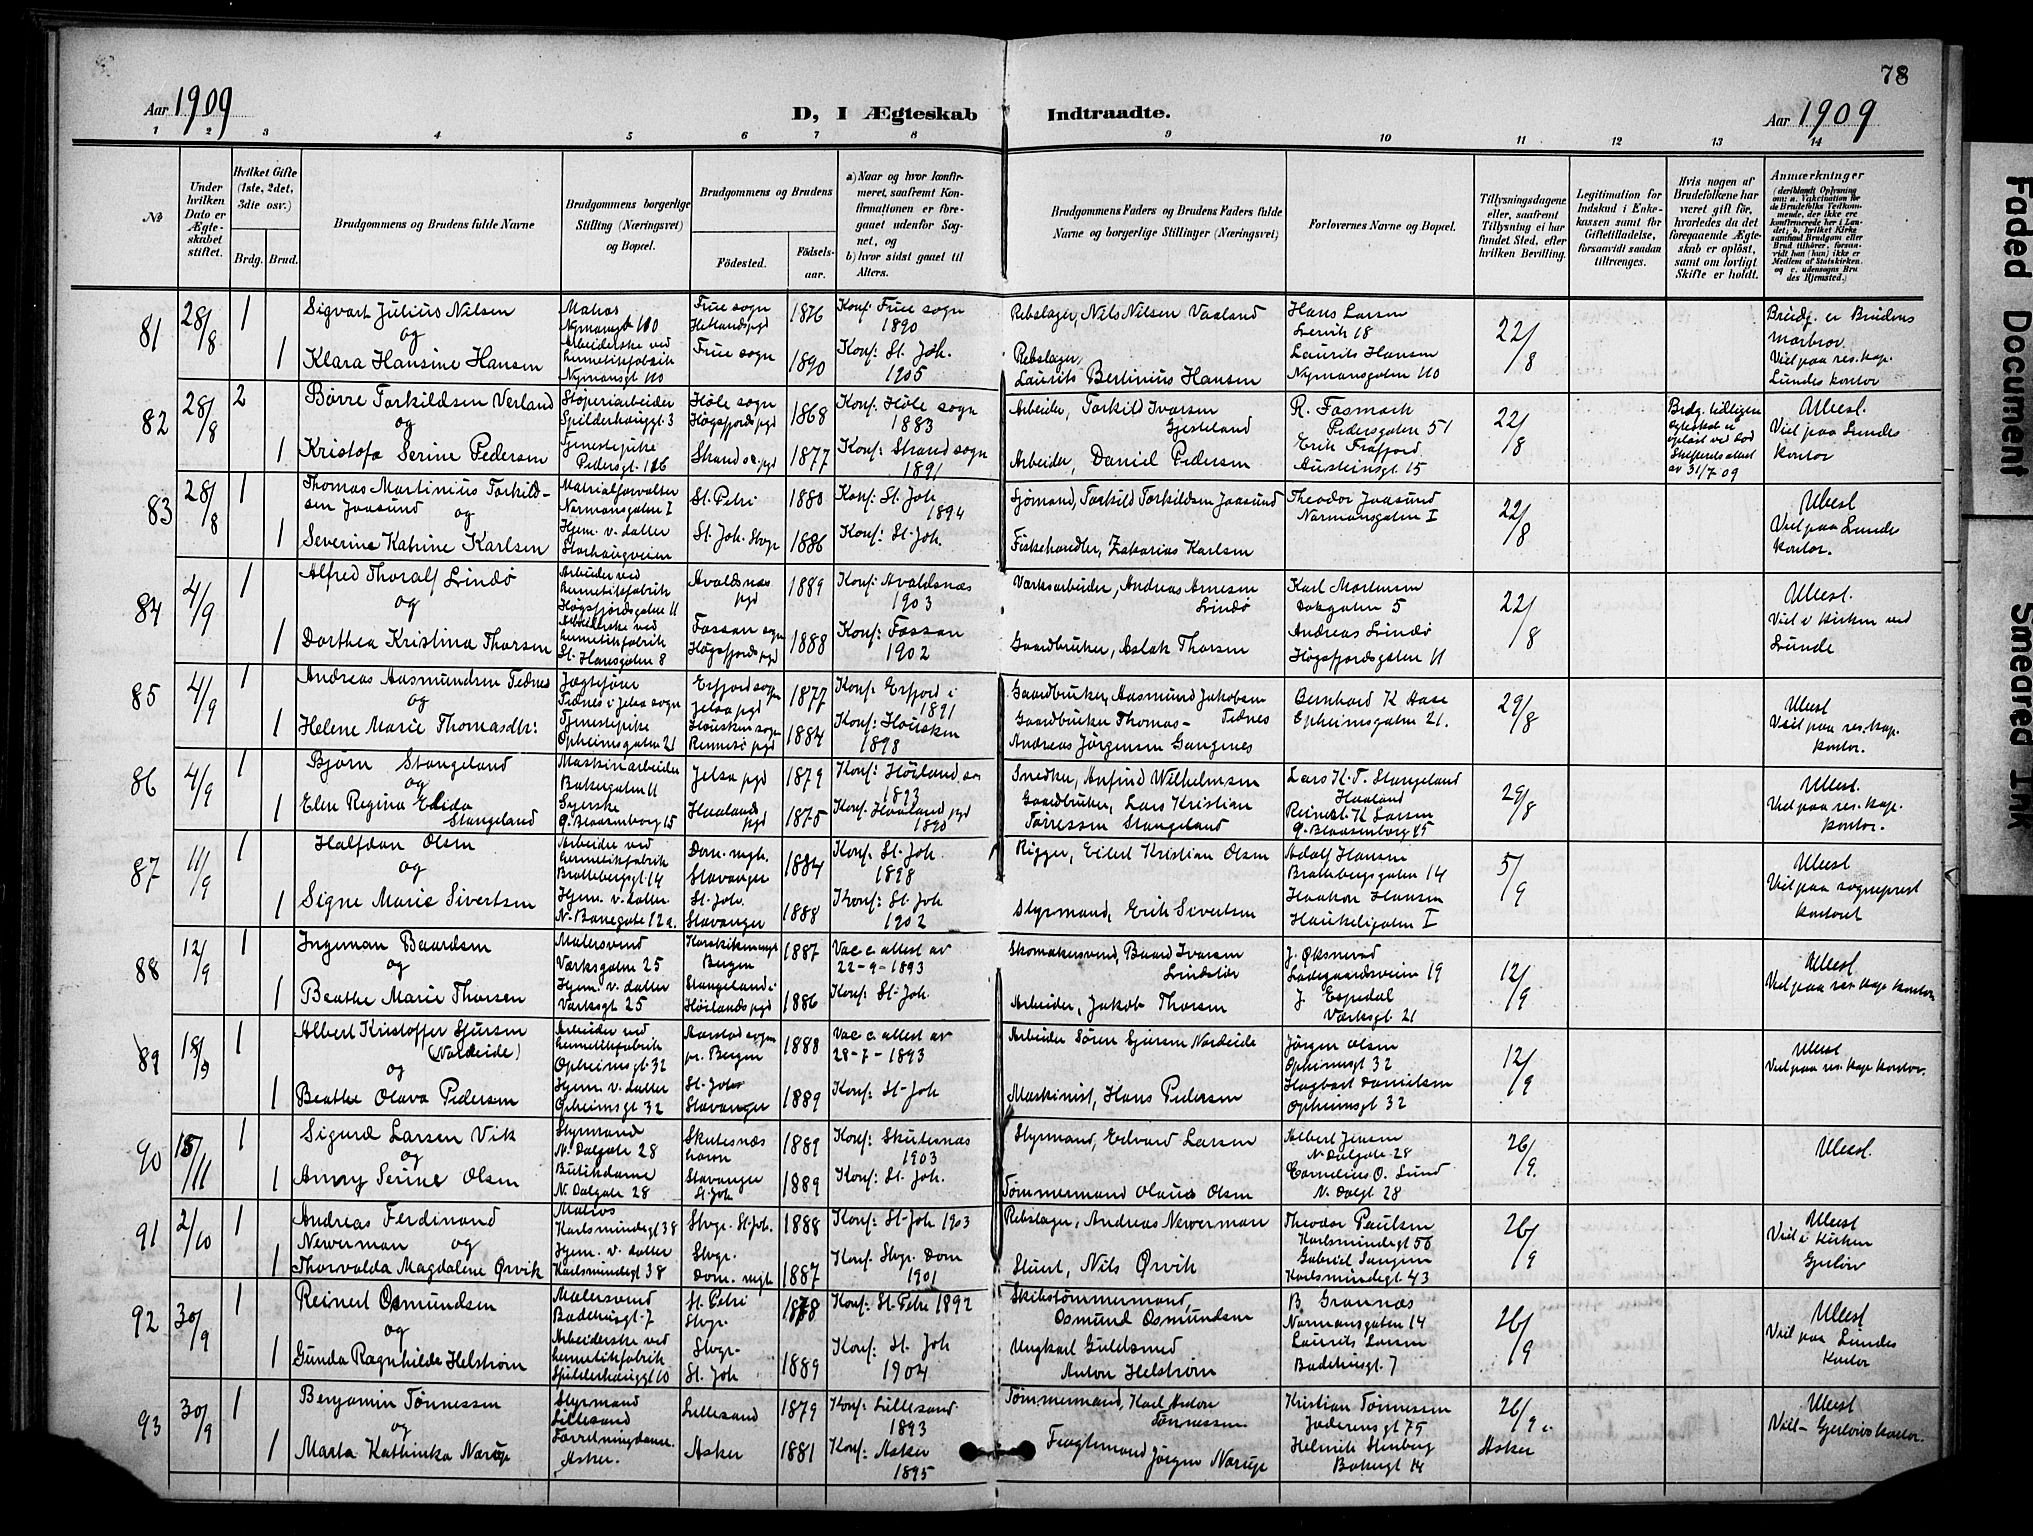 78
Aar 1909
D, I Ægteskab Indtraadte.
Aar 1909
1 2 3 4 5 6 7 8 9 10 11 12 13 14
№
Under hvilken Dato er Ægteskabet stiftet.
Hvilket Gifte (1ste, 2det, 3dte osv.)
Brdg. Brud.
Brudgommens og Brudens fulde Navne
Brudgommens borgerlige Stilling (Næringsvei) og Bopæl.
Brudgommens og Brudens
Födested.
Födsels-aar.
a) Naar og hvor konfirmeret, saafremt Konfirmationen er foregaaet udenfor Sognet, og
b) hvor sidst gaaet til Alters.
Brudgommens Faders og Brudens Faders fulde Navne og borgerlige Stillinger (Næringsvei)
Forlovernes Navne og Bopæl.
Tillysningsdagene eller, saafremt Tillysning ei har fundet Sted, efter hvilken Bevilling.
Legitimation for Indskud i Enkekassen samt for Giftetilladelse, forsaavidt saadan tiltrænges.
Hvis nogen af Brudefolkene har været gift för, hvorledes da det foregaaende Ægteskab er oplöst, samt om lovligt Skifte er holdt.
Anmærkninger
81 28/8 1 Sigvart Julius Nilsen Matros Frue sogn 1876 Konf: Frue sogn Rebslager, Nils Nilsen Vaaland Hans Larsen 22/8 Brudg. er Brudens
og Nymansgt 110 Hetlands pgd 1890 Lervik 18 morbror.
1 Klara Hansine Hansen Arbeiderske ved hermetikfabrik Nymansgt 110 Frue sogn 1890 Konf: St. Joh. 1905 Rebslager, Laurits Bertinius Hansen Laurits Hansen Nymansgaten 110 Viet paa res. kap. Lundes kontor
82 28/8 2 Børre Torkildsen Verland Støperiarbeider Høle sogn 1868 Konf: Høle sogn 1883 Arbeider, Torkild Ivarsen R. Fosmark 22/8 Brdg. tidligere Attest.
og Spilderhauggt. 3 Høgsfjords pgd Gjesteland Pedersgaten 51 ægteskab er Viet paa Lundes
1 Kristofa Serine Pedersen Tjenestepike Pedersgt. 126 Strand s. pgd 1877 Konf: Strand sogn 1891 Arbeider, Daniel Pedersen Erik Frafjord Austeinsgt 15 opløst ved død Skifteretsattest av 31/7 09 kontor
83 28/8 1 Thomas Martinius Torkildsen Jaasund og Matrialforvalter Normansgaten I St. Petri 1880 Konf: St. Joh 1894 Sjømand, Torkild Torkildsen Jaasund Theodor Jaasund Normansgaten I 22/8 Attest
1 Severine Katrine Karlsen Hjem. v. datter Storhaugveien St. Joh. Stvgr 1886 Konf: St. Joh. Fiskehandler, Zakarias Karlsen Viet paa Lunde kontor.
84 4/9 1 Alfred Thoralf Lindø Arbeider ved hermetikfabrik Høgsfjordsgaten 11 Avaldsnæs pgd 1889 Konf: Avaldsnæs 1903 Værksarbeider, Andreas Arnesen Lindø Karl Mortensen 5 22/8 Attest.
og Viet i kirken ved
1 Dorthea Kristina Thorsen Arbeiderske ved hermetikfabrik St. Hansgaten 8 Fossan sogn Høgsfjords pgd 1888 Konf: Fossan 1902 Gaardbruker, Aslak Thorsen Andreas Lindø Høgsfjordsgaten 11 Lunde
85 4/9 1 Andreas Aasmundsen Tednes Jægtefører Tednes i Jelsa sogn Erfjord sogn Jelsa pgd 1877 Konf: Erfjord i 1891 Gaardbruker, Aasmund Jakobsen Tednes Bernhard K Aase Opheimsgaten 21. 29/8 Attest
og Viet paa res. kap.
1 Helene Marie Thomasdtr: Tjenestepike Opheimsgaten 21 Rennesø pgd 1884 1898 Gaardbruker Thomas Andreas Jørgensen Gangenes kontor.
86 4/9 1 Bjørn Stangeland Maskinarbeider Bakergaten 11 Jelsa pgd 1879 Konf: Høiland 1893 Snedker, Anfind Wilhelmsen Lars K. T. Stangeland Haaland 29/8 Attest.
og Viet paa res. kap.
1 Elen Regina Elida Stangeland Syerske G. Blaasenborg 15 Haalands pgd 1875 Konf. Haaland pgd 1890 Gaardbruker, Lars Kristian Torressen Stangeland Reinert K Larsen G. Blaasenborg 15 kontor.
87 11/9 1 Halfdan Olsen Arbeider ved hermetikfabrik Brattebergsgt. 14 Dom. mgh. Stavanger 1884 Konf. St. Joh. 1898 Rigger, Eilert Kristian Olsen Adolf Hansen Brattebergsgaten 14 5/9 Attest
og Viet paa sogneprest
1 Signe Marie Sivertsen Hjem. v. datter N. Banegate 12a. St. Joh. Stavanger 1888 Konf: St. Joh 1902 Styrmand, Erik Sivertsen Haakon Hansen Haukeligaten I kontoret
88 12/9 1 Ingeman Baardsen Malersvend Værksgaten 25 Korskirken mgt Bergen 1887 Vac c. attest av 22-9-1893 Skomakersvend, Baard Ivarsen J. Øksnevad Ladegaardsveien 19 12/9 Attest
og Viet paa res. kap kontor
1 Beathe Marie Thorsen Hjem v. datter Værksgt 25 Stangeland i Høilands pgd 1886 Konf: St. Joh. Arbeider, Jakob Thorsen J. Espedal Værksgt 21
89 18/9 1 Albert Kristoffer Sjursen (Nordeide) Arbeider ved hermetikfabrik Opheimsgt. 32 Aarstad sogn pr. Bergen 1888 Vac c. attest av 28-7-1893 Arbeider Søren Sjursen Nordeide Jørgen Olsen Opheimsgt 32 12/9 Attest
og Viet paa res. kap kontor.
1 Beathe Olava Pedersen Hjem v. datter Opheimsgt 32 St. Joh. Stavanger 1889 Konf: St. Joh Maskinist, Hans Pedersen Hagbart Danielsen Opheimsgt 32
90 15/11 1 Sigurd Larsen Vik Styrmand N. Dalgate 28 Skutesnæs havn 1889 Konf: Skutesnæs 1903 Styrmand, Edvard Larsen Albert Jensen N Dalgate 28 26/9. Attest.
og
1 Anny Serine Olsen Butikdame N. Dalgate 28 Stavanger St. Joh 1889 Konf: St. Joh. Tømmermand Olaus Olsen Cornelius O. Lund N. Dalgt 28
91 2/10 1 Andreas Ferdinand Newerman og Matros Karlsmindegt 38 Stvgr. St. Joh. 1888 Konf: St. Joh 1903 Rebslager, Andreas Newerman Theodor Paulsen Karlsmindegt 56 26/9 Attest Viet i kirken
1 Thorvalda Magdalene Ørvik Hjem. v. datter Karlsmindegt 38 Stvgr. Dom. mgt 1887 Konf. Stvgr. Dom 1901 Stuert, Nils Ørvik Gabriel Karlsmindegt 43 Gjerløw
92 30/9 1 Reinert Osmundsen Malersvend Badehusgt. 7 St. Petri Stvgr. 1878 Konf: St. Petri 1892 Skibstømmermand, Osmund Osmundsen B. Grannæs Normansgaten 14 26/9 Attest
og Viet paa Lundes
1 Gunda Ragnhilde Helstrøm Arbeiderske ved hermetikfabrik Spilderhauggt 10 Stvgr. St. Joh 1889 Konf: St. Joh 1904 Ungkarl Guldsmed Anton Helstrøm Laurits Larsen Badehusgt. 7 kontor
93 30/9 1 Benjamin Tönnessen Styrmand Lillesand Lillesand 1879 Konf: Lillesand 1893 Tømmermand, Karl Anton Tönnessen Kristian Tönnessen Jæderensgt 75 26/9 Attest
og Viet Gjerløws kontor.
1 Marta Kathinka Narup Forretningsdame. Asker. Asker 1881 Konf: Asker 1895 Fragtemand Jörgen Narup Helmik Stenberg Bakergt 14 Asker
Faded Document
Smeared Ink